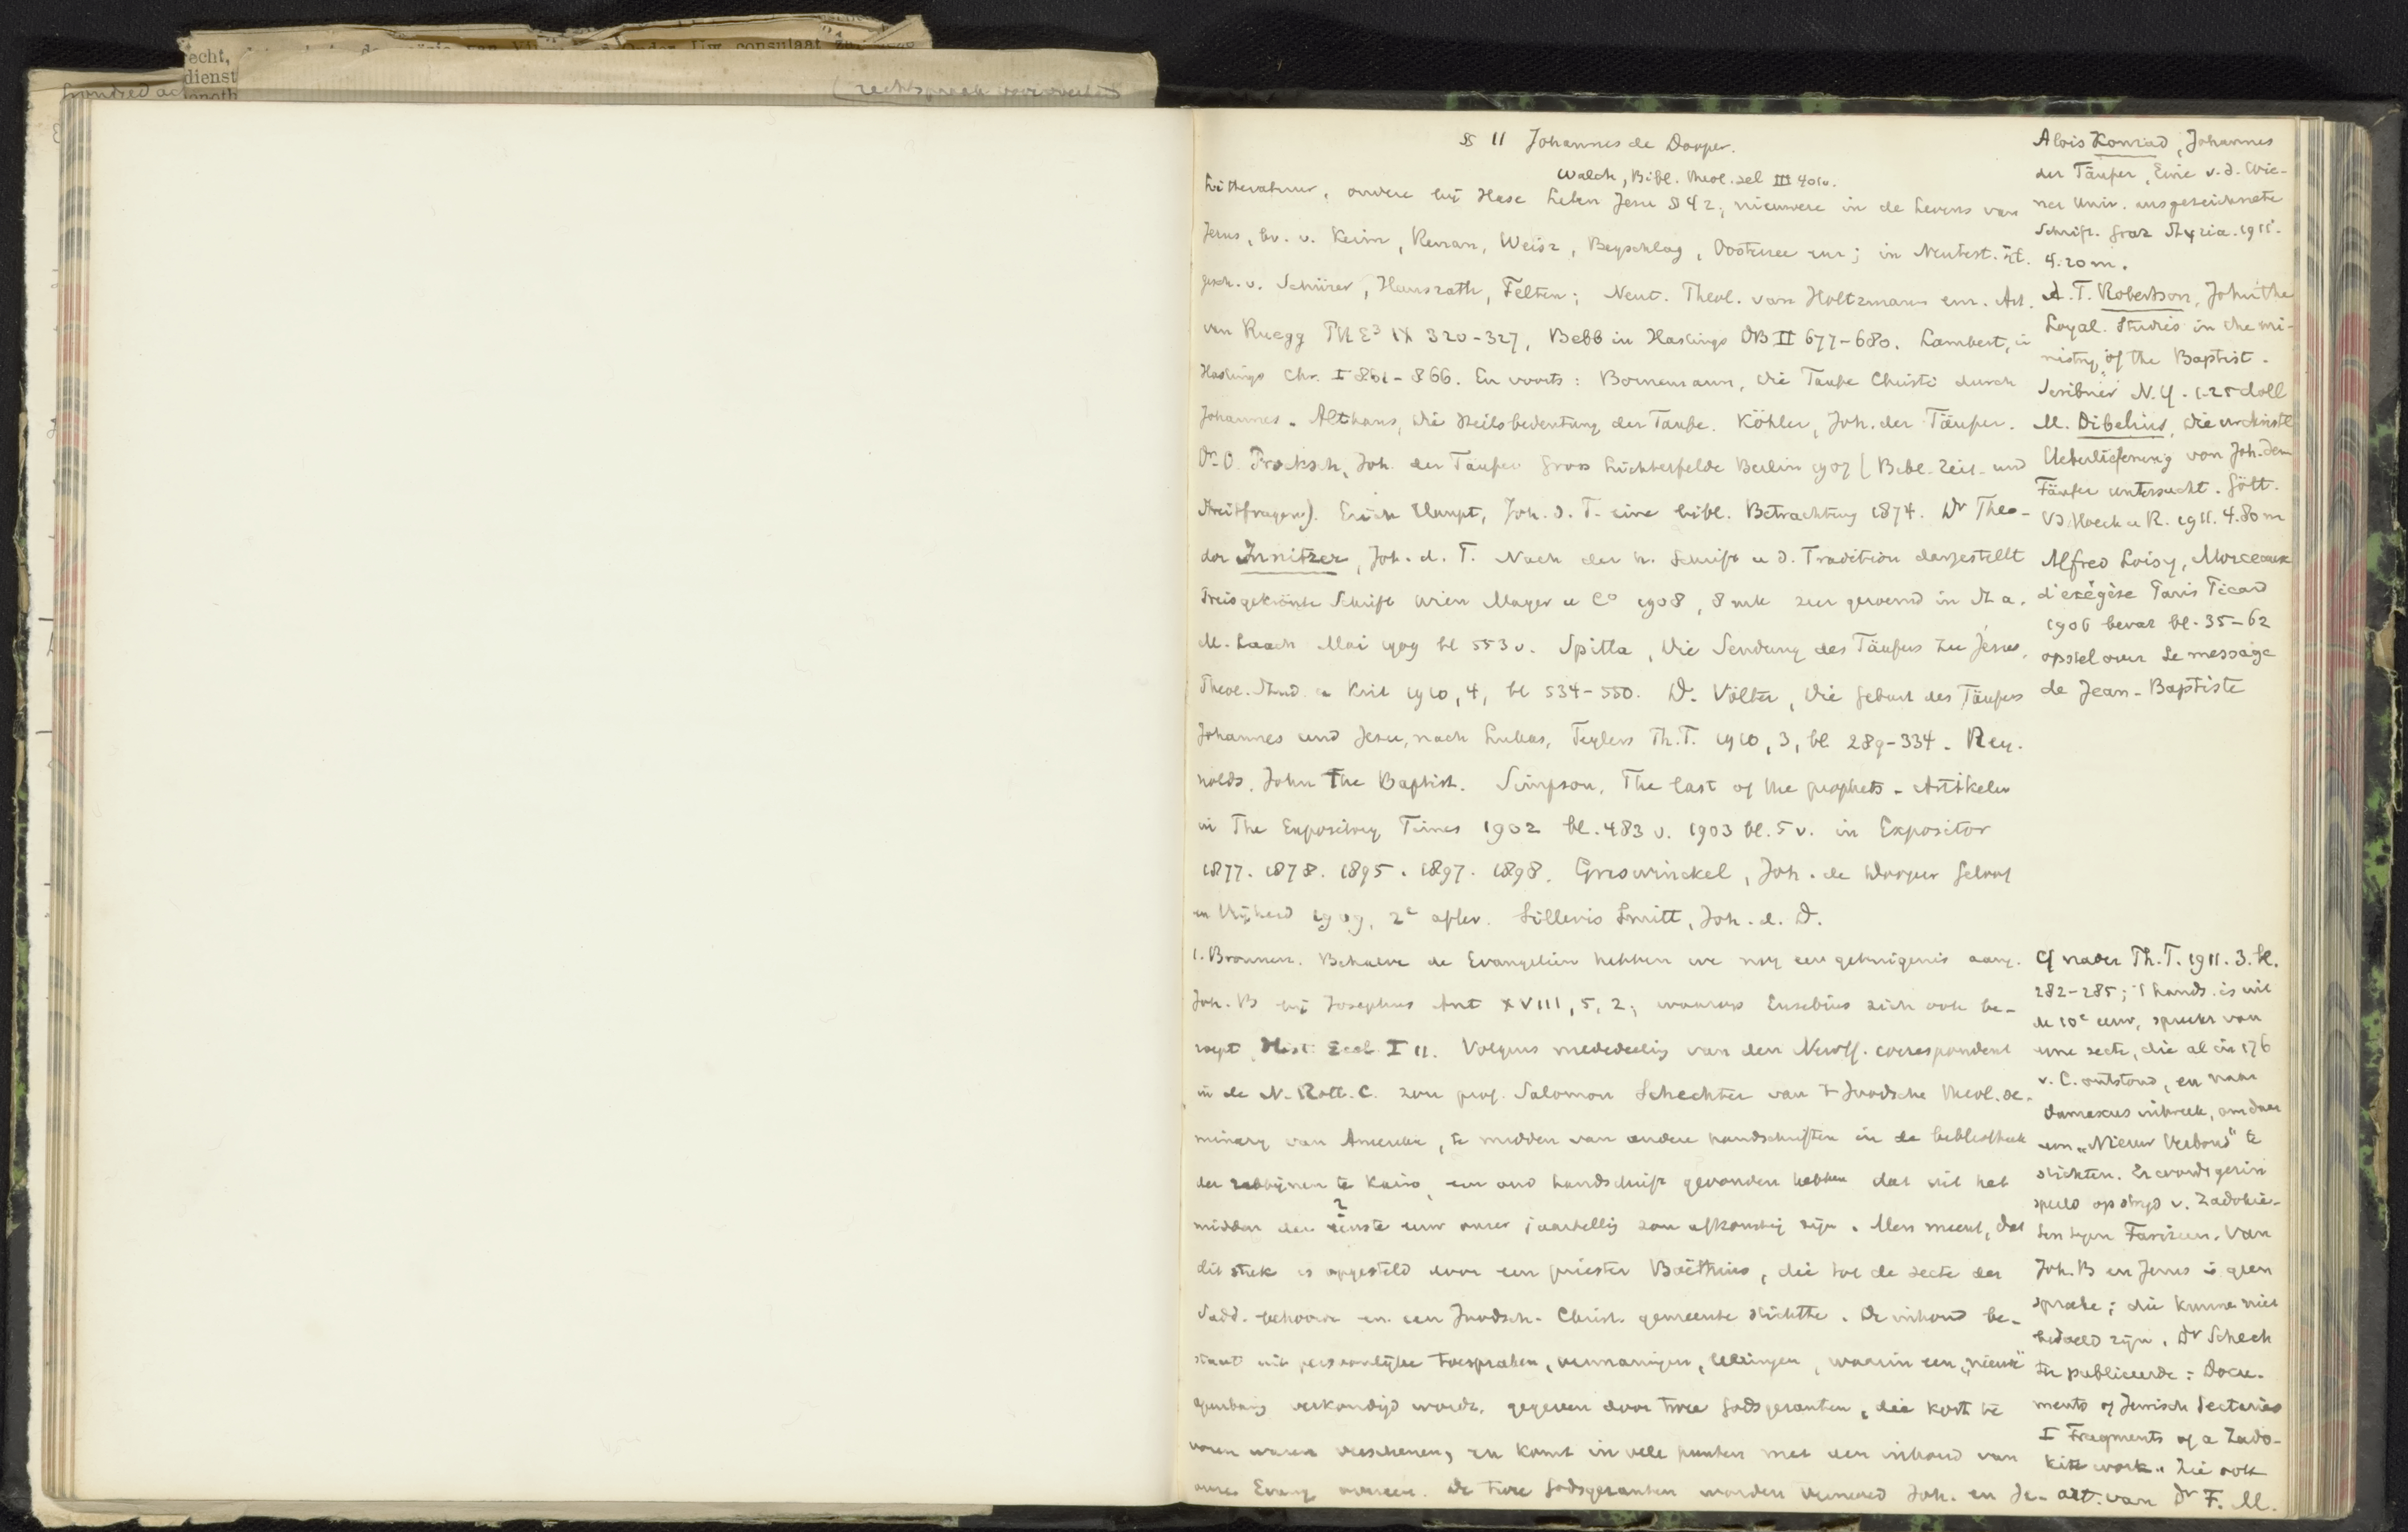 echt,
dienst
Onder Uw consulaat
hondred
rechtspraak
§ 11 Johannes de Dooper.
Walch, Bibl. theol. sel III 401v.
Litteratuur, oudere bij Hase Leben Jesu § 42; nieuwere in de Levens van
Jezus, bv. v. Keim, Renan, Weisz, Beyschlag, Oosterzee enz; in Neutest. Zt.
gesch. v. Schürer, Hausrath, Felten; Neut. Theol. van Holtzmann enz. Art.
van Ruegg PRE³ IX 320-327, Bebb in Hastings DB II 677-680. Lambert, in
Hastings Chr. I 861-866. En voorts: Bornemann, die Taufe Christi durch
Johannes. Althaus, die Heilsbedeutung der Taufe. Köhler, Joh. der Täufer.
Dr. O. Procksch, Joh. der Täufer Gross Lichterfelde Berlin 1907 (Bibl. Zeit- und
Streitfragen). Erich Haupt, Joh. d. T. eine bibl. Betrachtung 1874. Dr Theo-
dor Innitzer, Joh. d. T. Nach der h. Schrift u d. Tradition dargestellt
Preisgekrönte Schrift Wien Mayer u Co 1908, 8 mk zeer geroemd in St a.
M. Laach Mai 1909 bl 553 v. Spitta, Die Sendung des Täufers zu Jesus,
Theol. Stud. u Krit 1910, 4, bl 534-550. D. Völter, Die Geburt des Täufers
Johannes und Jesu, nach Lukas, Teylers Th.T. 1910, 3, bl 289-334. Rey-
nolds, John the Baptist. Simpson, The last of the prophets - Artikelen
in The Expository Times 1902 bl. 483 v. 1903 bl. 5 v. in Expositor
1877. 1878. 1895. 1897. 1898. Groswinckel, Joh. de Dooper Geloof
en Vrijheid 1909, 2e aflev. Sillevis Smitt, Joh. d. D.
1. Bronnen. Behalve de Evangeliën hebben we nog een getuigenis aang.
Joh. B bij Josephus Ant XVIII, 5, 2; waarop Eusebius zich ook be-
roept Hist. Eccl. I 11. Volgens mededeeling van den correspondent
in de N. Rott. C. zou prof. Salomon Schechter van 't Joodsche theol. se-
minary van Amerika, te midden van andere handschriften in de bibliotheek
der rabbijnen te Kairo, een oud handschrift gevonden hebben dat uit het
?
midden der eerste eeuw onzer jaartelling zou afkomstig zijn. Men meent, dat
dit stuk is opgesteld door een priester Boëthius, die tot de secte der
Sadd. behoorde en een Joodsch-Christ. gemeente stichtte. De inhoud be-
staat uit persoonlijke toespraken, vermaningen, lezingen, waarin een "nieuwe"
openbaring verkondigd wordt, gegeven door twee Godsgezanten, die kort te
voren waren verschenen, en komt in vele punten met den inhoud van
onze Evang overeen. De twee Godsgezanten worden genoemd Joh. en Je-
Alois Konrad, Johannes
der Täufer, Eine v. d. Wie-
ner Univ. ausgezeichnete
Schrift. Graz Styria. 1911.
4.20 m.
A. T. Robertson, John the
Loyal. Studies in the mi-
nistry of the Baptist.
Scribner N.Y. 1.25 doll
M. Dibelius, die urchristl
Ueberlieferung von Joh. dem
Täufer untersucht. Gött.
Vd Hoeck u R. 1911. 4.80 m
Alfred Loisy, Morceaux
d'exégèse Paris Picard
1906 bevat bl. 35-62
opstel over Le message
de Jean-Baptiste
Cf nader Th.T. 1911. 3. bl.
282-285; 't hands. is uit
de 10e eeuw, spreekt van
eene secte, die al in 176
v. C. ontstond, en naar
Damascus uitweek, om daar
een "Nieuw Verbond" te
stichten. Er wordt gezin
speeld op strijd v. Zadokie-
ten tegen Farizeen. Van
Joh. B en Jezus is geen
sprake; die kunnen niet
bedoeld zijn. Dr Schech
ter publiceerde: Docu-
ments of Jewish Sectaries
I Fragments of a Zado-
kite work. Zie ook
art. van Dr F. M.